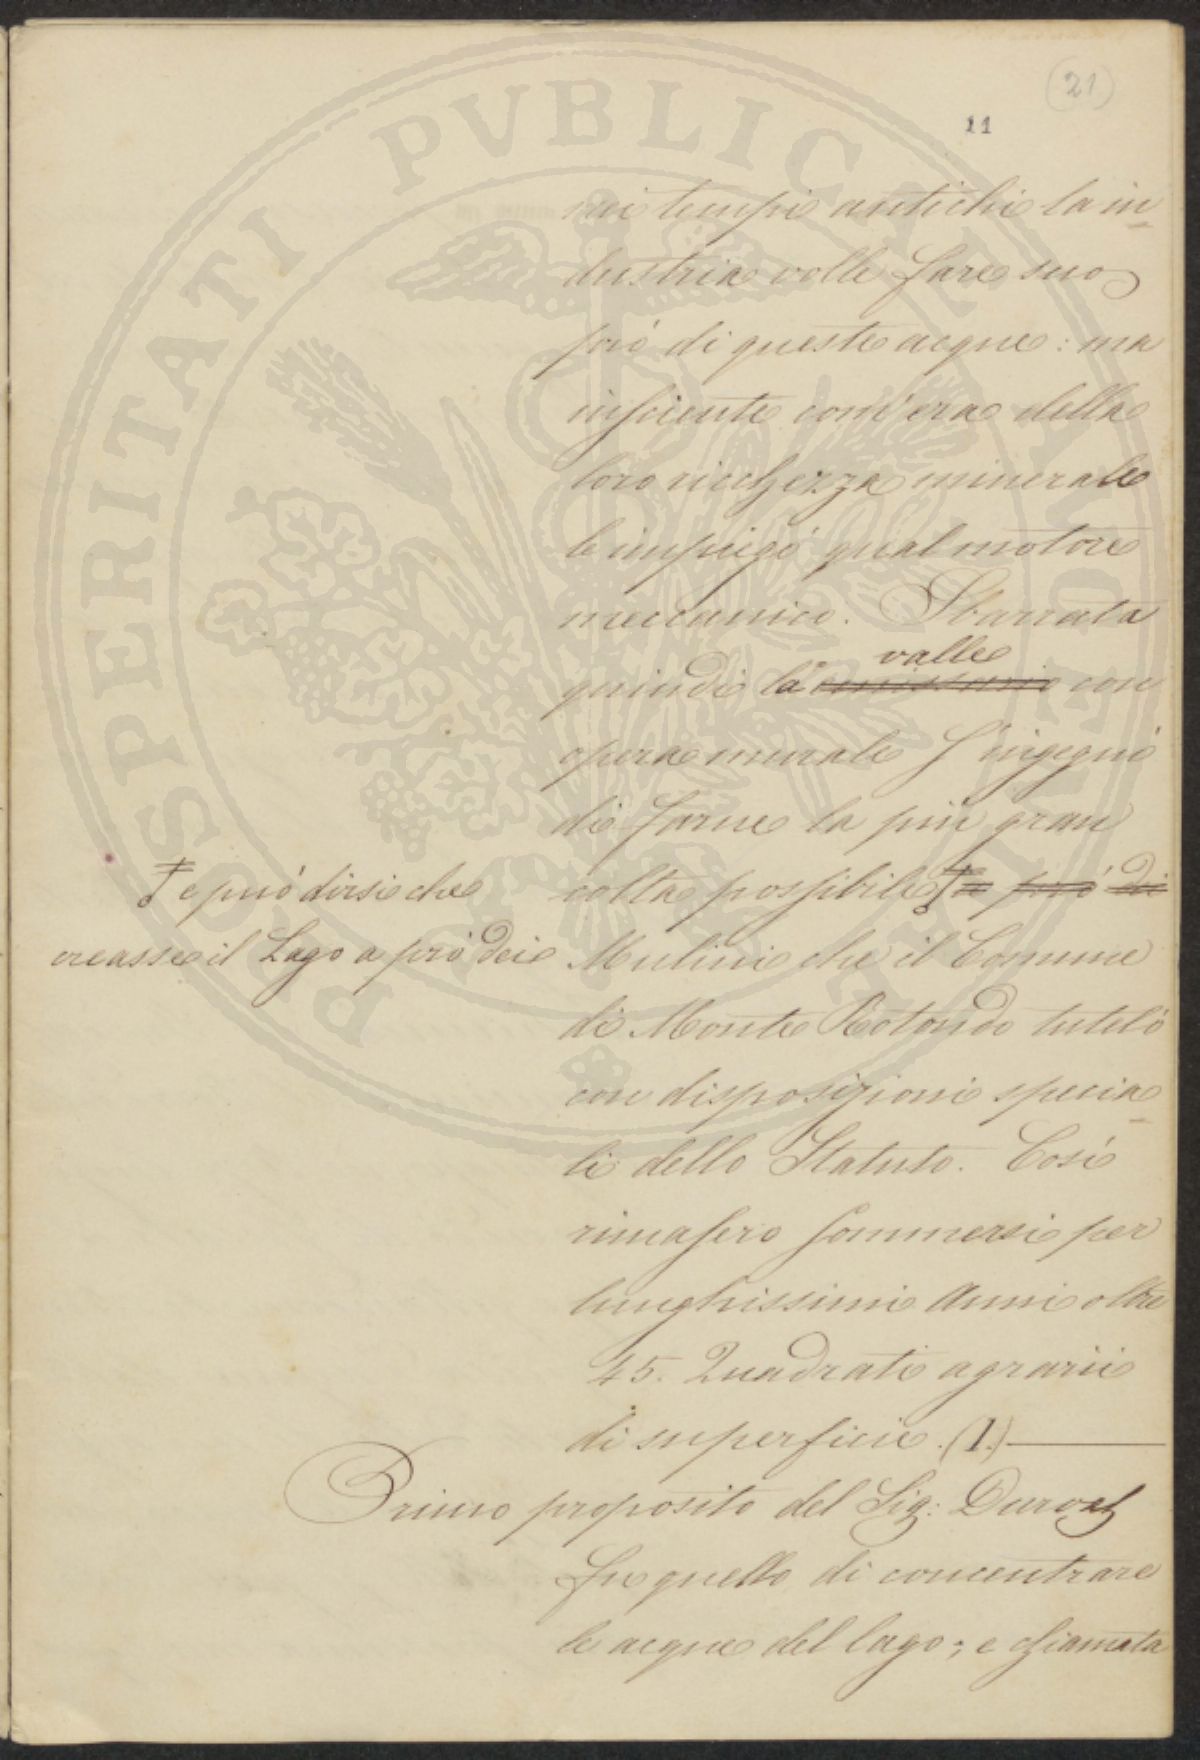 (21)
11
nei tempi antichi la in
dustria volle fare suo
pró di queste acque: ma
insciente com'era della
loro ricchezza minerale
le impiegó qual motore
meccanico. Sbarrata
valle
quindi la emissario con
opera murale s'ingegnó
di farne la piú gran
colta possibile e pró di
e puó dirsi che
creasse il Lago a pró dei
Mulini che il Comune
di Monte Rotondo tuteló
con disposizioni specia
li dello Statuto. Cosí
rimasero sommersi per
lunghissimi Anni oltre
45. Quadrati agrarii
di superficie. (1.)
Primo proposito del Sig: Durval
fu quello di concentrare
le acque del lago; e chiamata
PROSPERITATI PVBLICAE